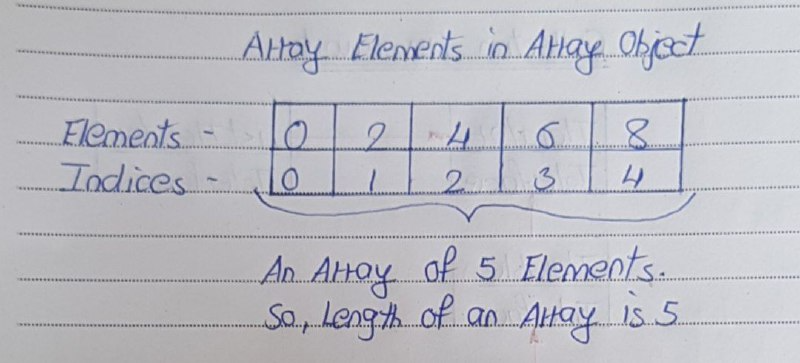 Array Elements in Array Object
Elements - 0 2 4 6 8
Indices - 0 1 2 3 4
An Array of 5 Elements.
So, Length of an Array is 5